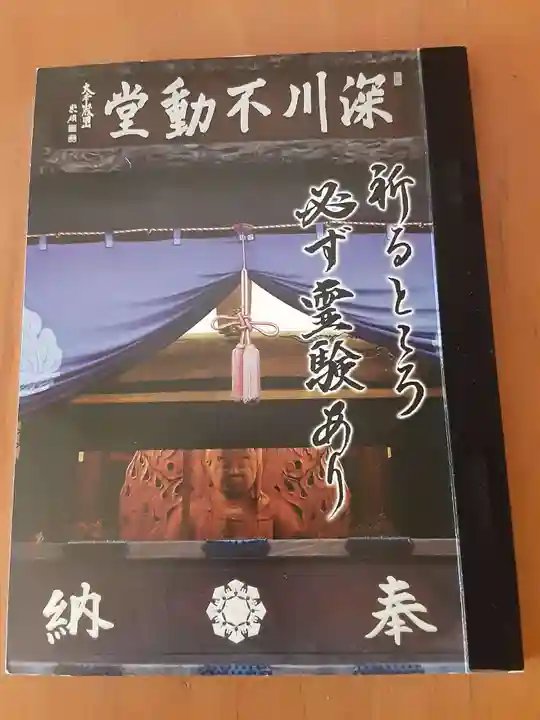 深川不動堂
祈るところ
必ず霊験あり
奉納